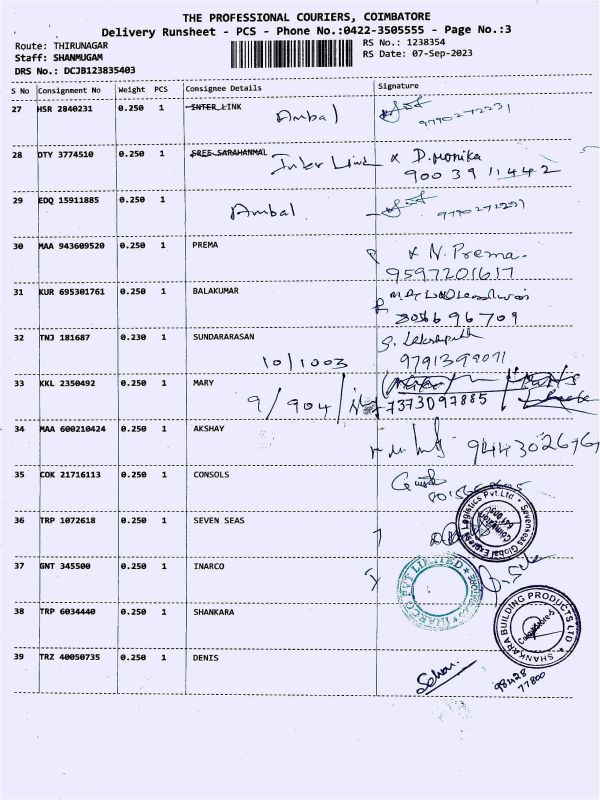 THE PROFESSIONAL COURIERS, COIMBATORE
Delivery Runsheet - PCS - Phone No.:0422-3505555 - Page No.:3
Route: THIRUNAGAR
Staff: SHANMUGAM
DRS No.: DCJB123835403
RS No.: 1238354
RS Date: 07-Sep-2023
S No Consignment No Weight PCS Consignee Details Signature
27 HSR 2840231 0.250 1 INTER LINK Ambal 9790272231
28 OTY 3774510 0.250 1 SREE SARAHANMAL Inter Link x D. Monika
9003911442
29 EDQ 15911885 0.250 1 Ambal
30 MAA 943609520 0.250 1 PREMA x N. Prema
9597201617
31 KUR 695301761 0.250 1 BALAKUMAR
8056696709
32 TNJ 181687 0.230 1 SUNDARARASAN
10/1003 9791399071
33 KKL 2350492 0.250 1 MARY
9/904/ 7373097885
34 MAA 600210424 0.250 1 AKSHAY
35 COK 21716113 0.250 1 CONSOLS
36 TRP 1072618 0.250 1 SEVEN SEAS
Sevenseas Global Express Logistics Pvt.Ltd
37 GNT 345500 0.250 1 INARCO
INARCO PVT LIMITED
38 TRP 6034440 0.250 1 SHANKARA
SHANKARA BUILDING PRODUCTS LTD
Coimbatore-5
39 TRZ 40050735 0.250 1 DENIS
98428
77800